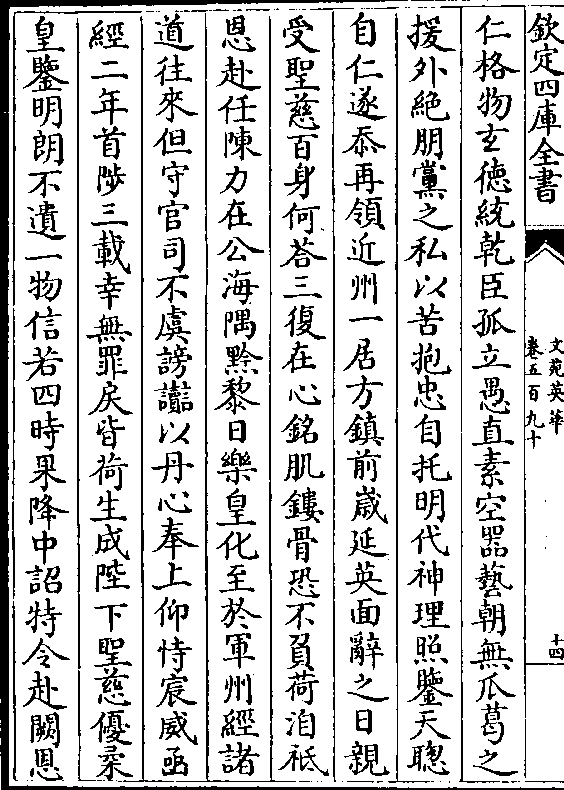 欽定四庫全書
文苑英華
卷五百九十
十四
仁格物玄徳統乾臣孤立愚直素空器藝朝無瓜葛之
援外絶朋黨之私以苦抱忠自托明代神理照鑒天聰
自仁遂忝再領近州一居方鎮前嵗延英面辭之日親
受聖慈百身何荅三復在心銘肌鏤骨恐不負荷洎袛
恩赴任陳力在公海隅黔黎日樂皇化至於軍州經諸
道往來但守官司不虞謗讟以丹心奉上仰恃宸威亟
經二年首陟三載幸無罪戾皆荷生成陛下聖慈優柔
皇鑒明朗不遺一物信若四時果降中詔特令赴闕恩